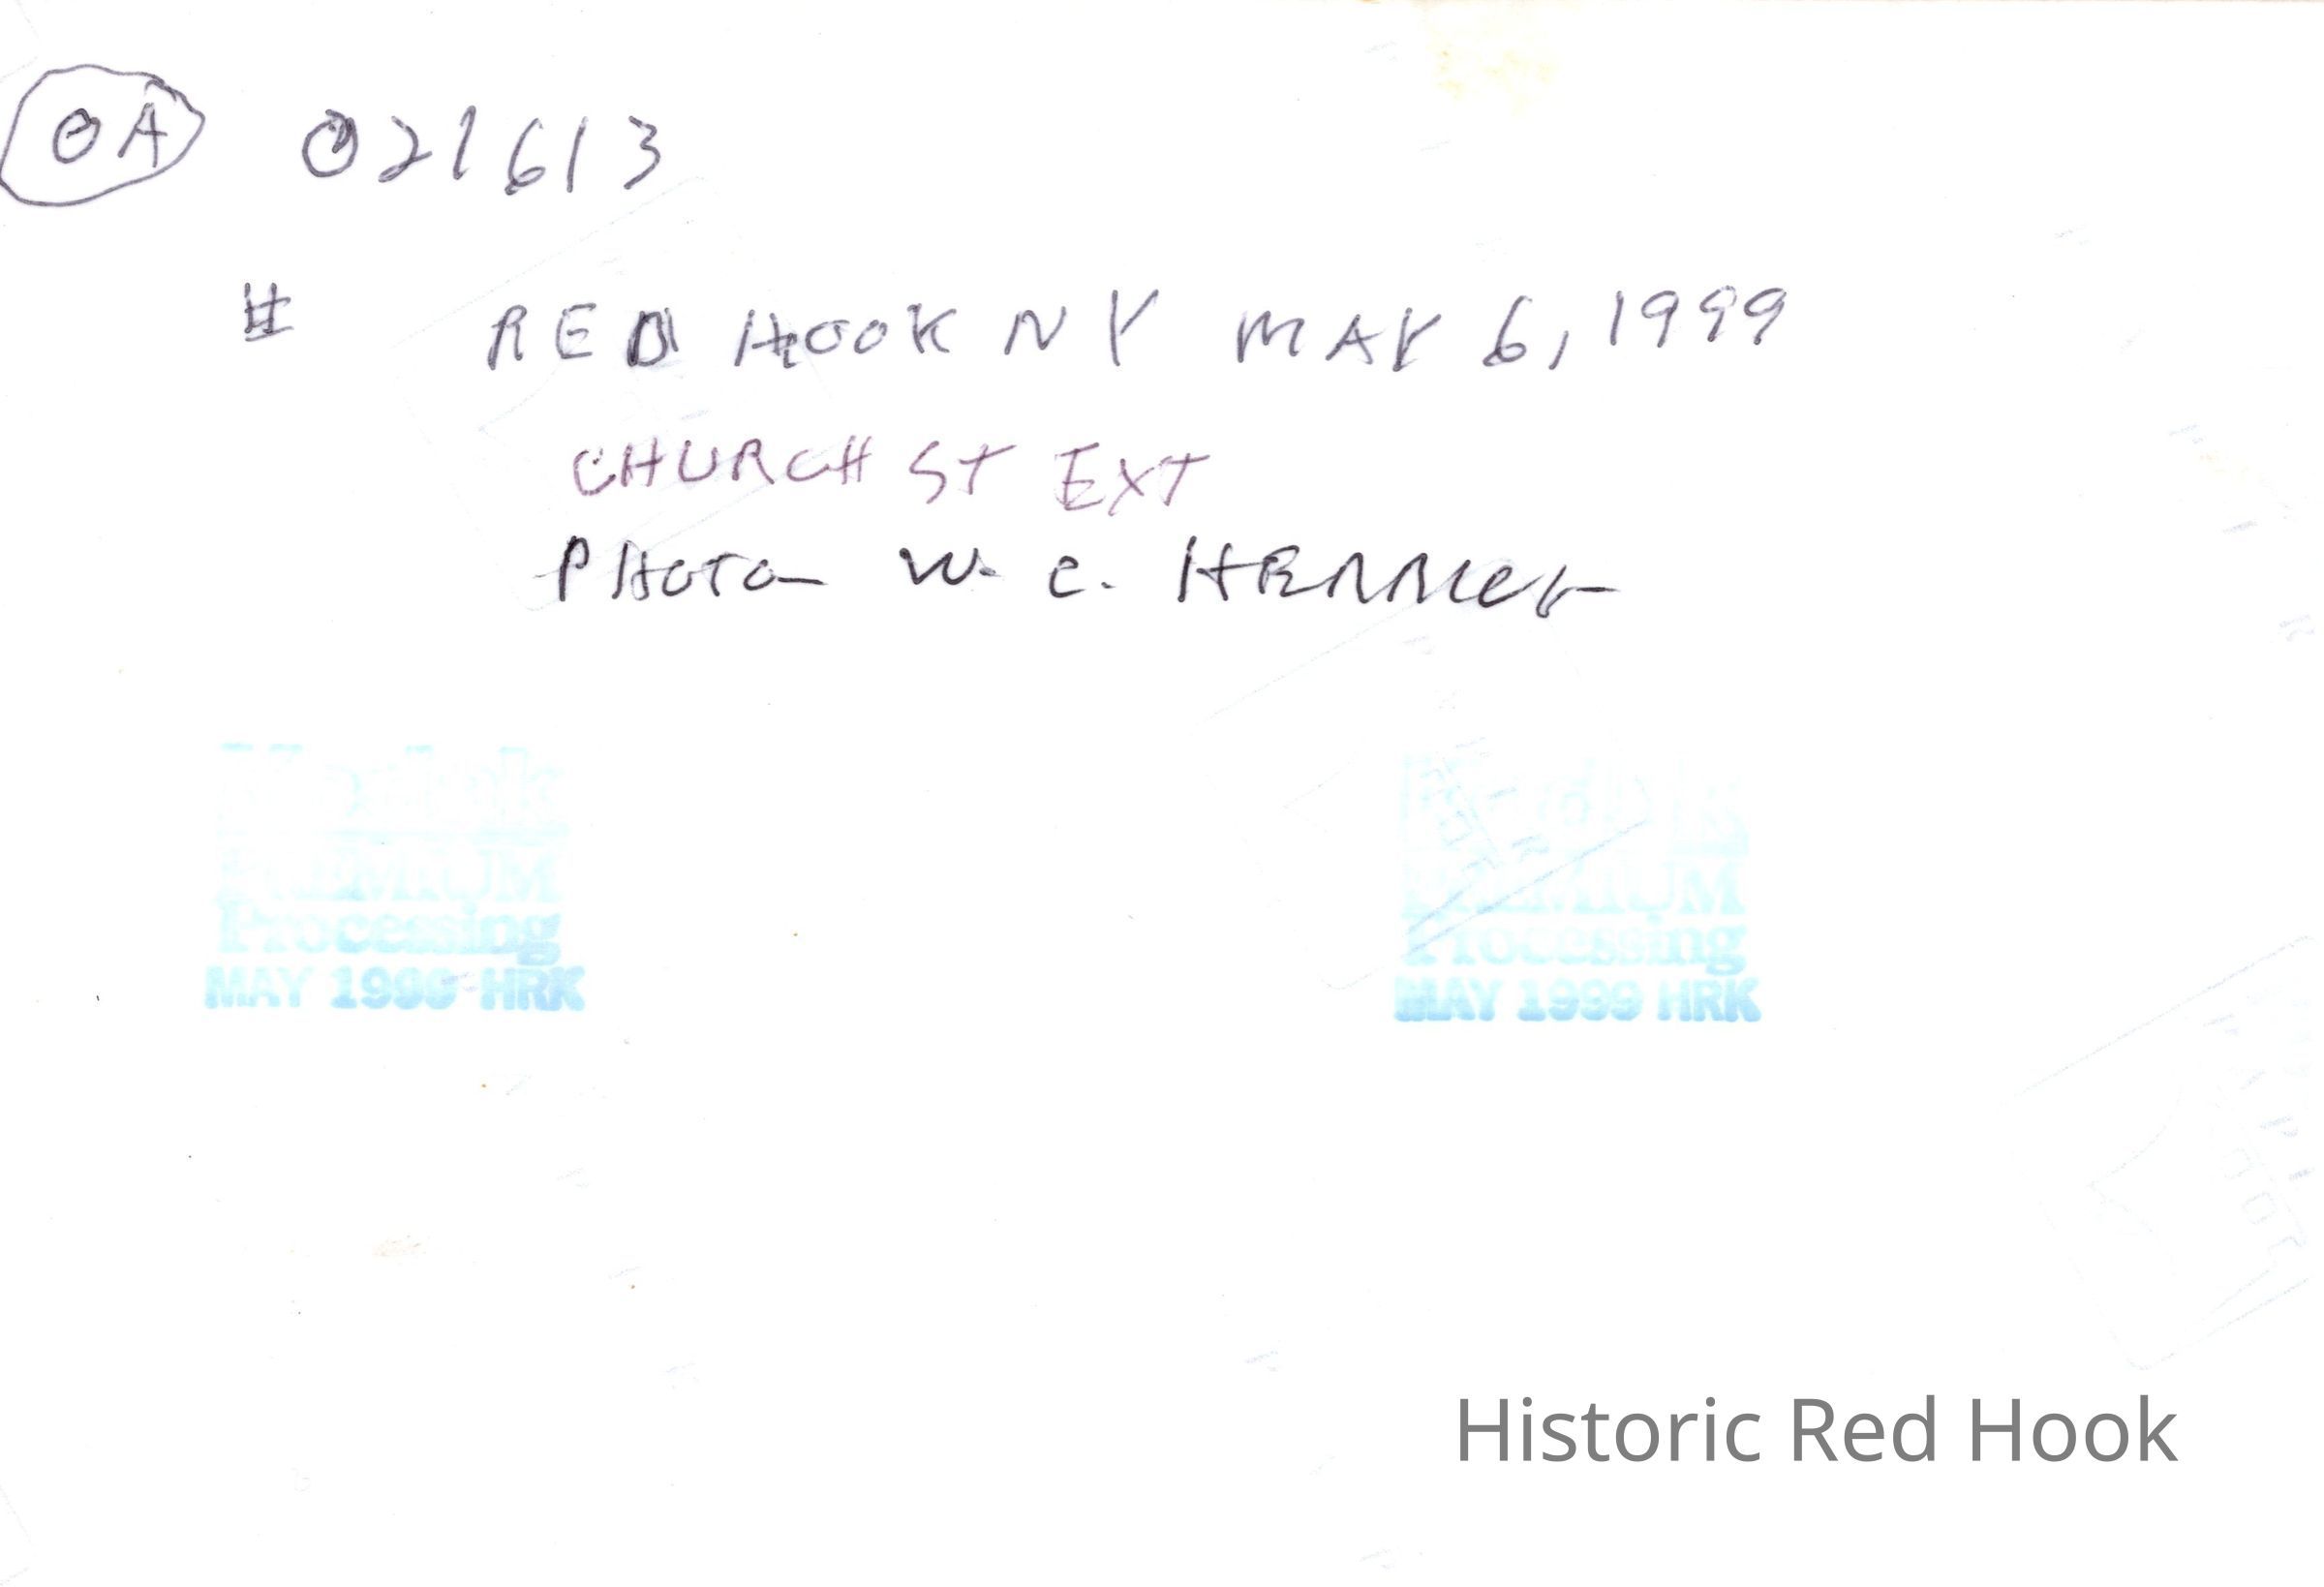 OA 021613
# RED HOOK NY MAY 6, 1999
CHURCH ST EXT
PHOTO W. C.
Kodak Kodak
PREMIUM PREMIUM
Processing Processing
MAY 1999 HRK MAY 1999 HRK
Historic Red Hook